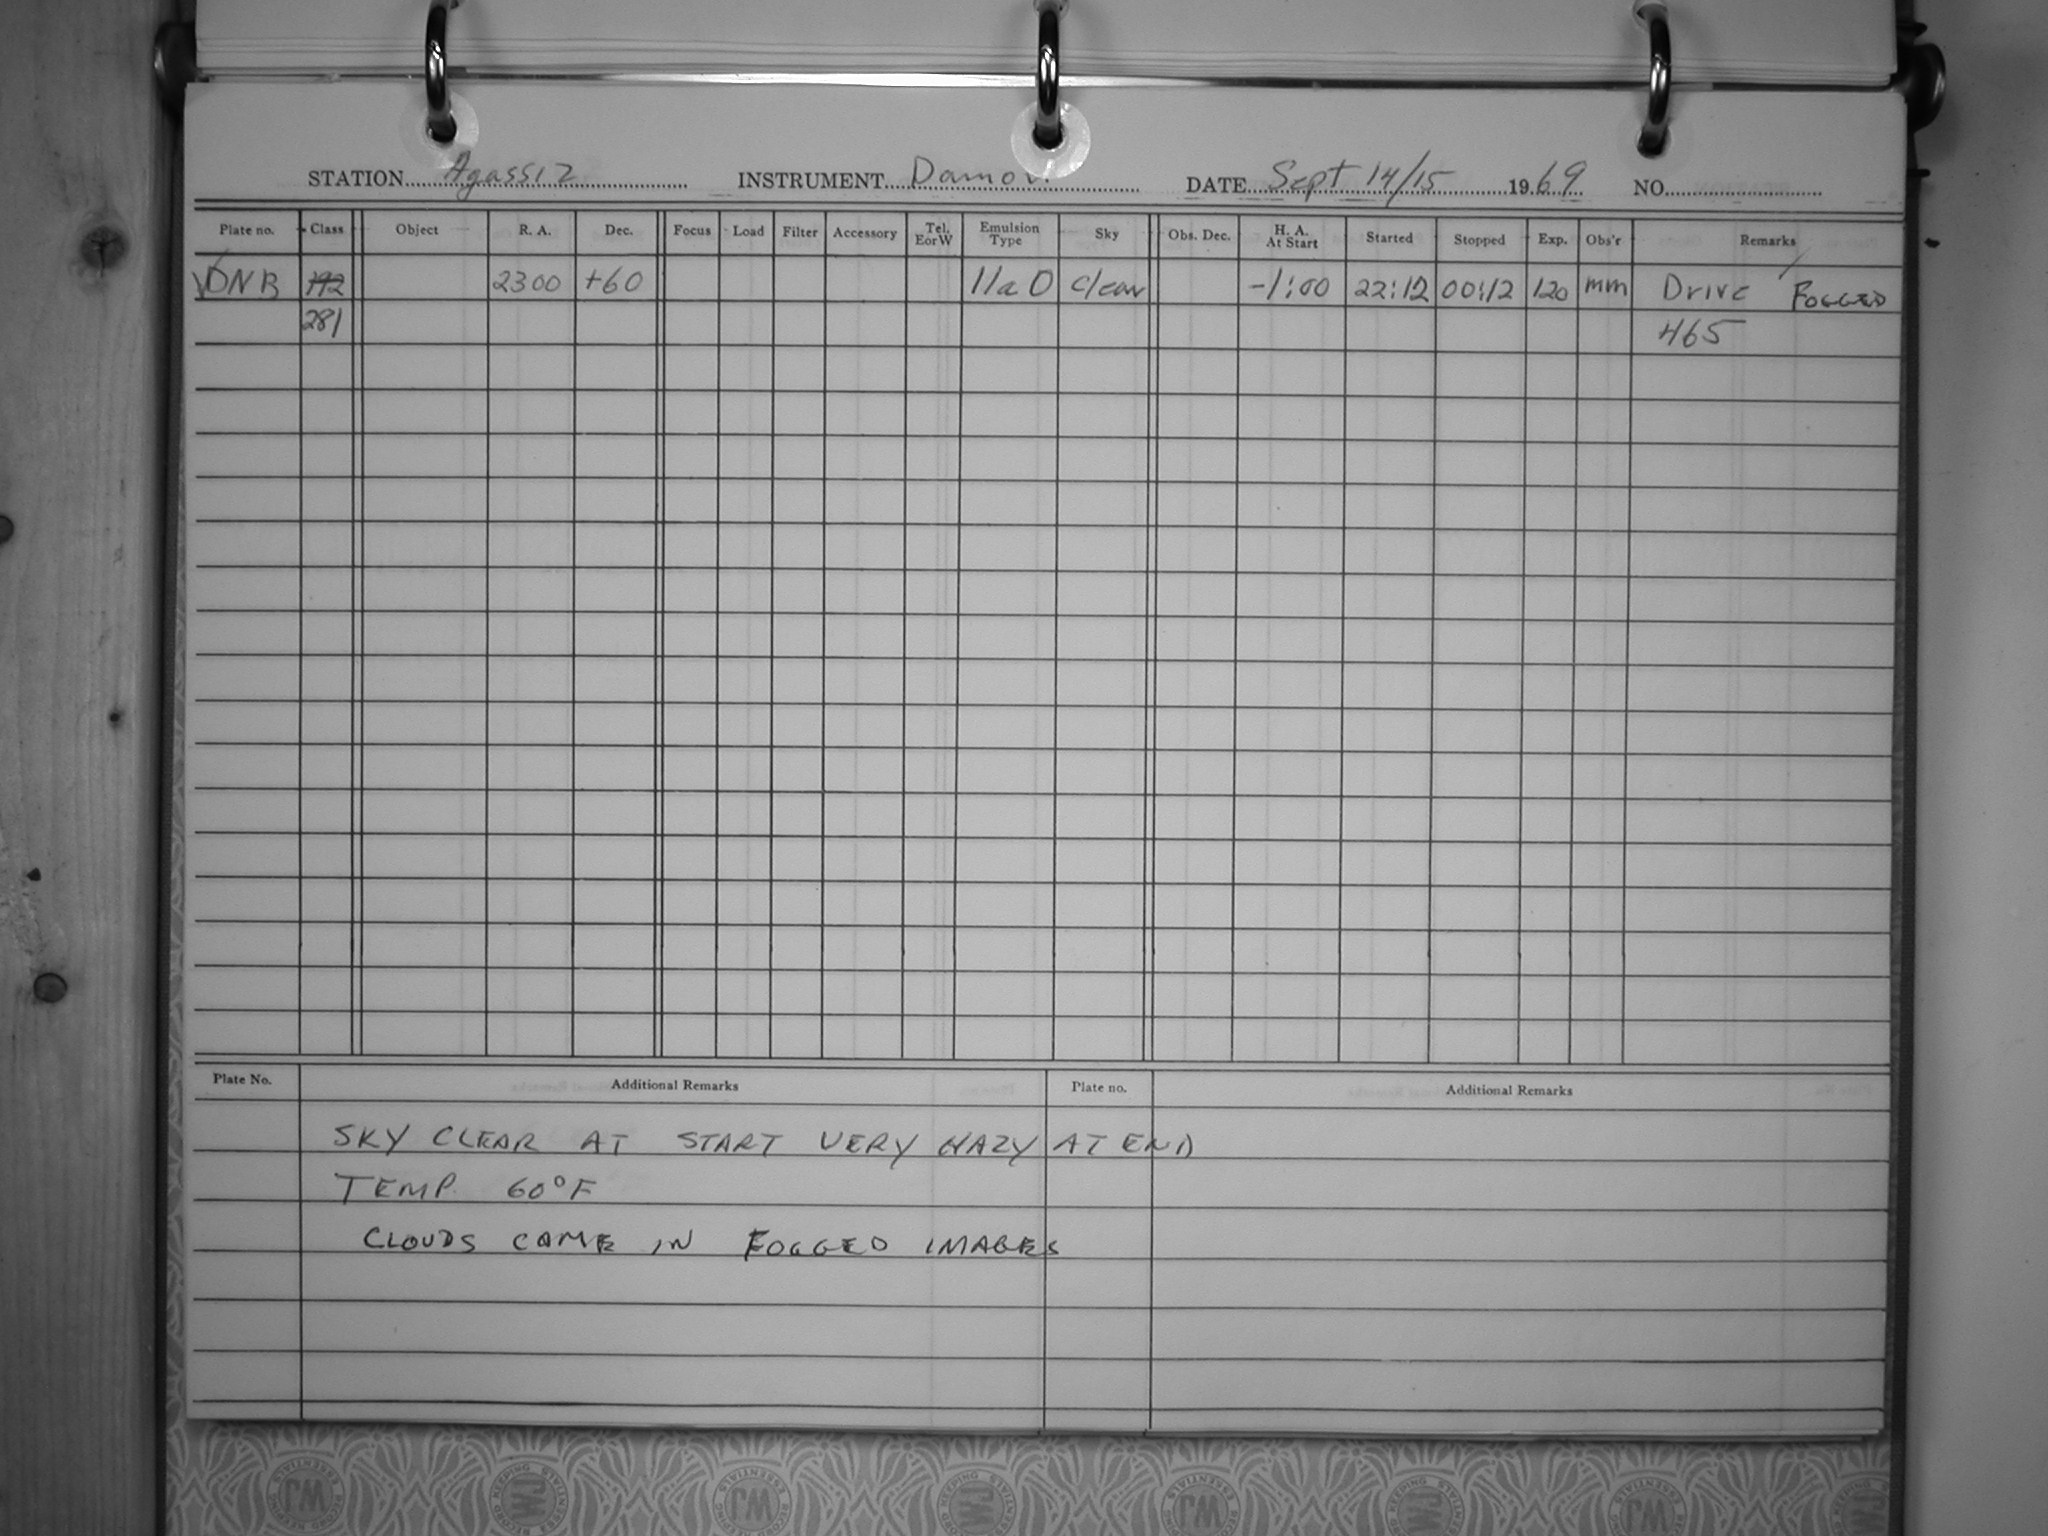 STATION Agassiz INSTRUMENT Damon DATE Sept 14/15 1969 NO.
Plate no. Class Object R. A. Dec. Focus Load Filter Accessory Tel. EorW Emulsion Type Sky Obs. Dec. H. A. At Start Started Stopped Exp. Obs'r Remarks
DNB 192 2300 +60 IIaO clear -1:00 22:12 00:12 120 mm Drive FOGGED
281 465
Plate No. Additional Remarks Plate no. Additional Remarks
SKY CLEAR AT START VERY HAZY AT END
TEMP. 60°F
CLOUDS CAME IN FOGGED IMAGES